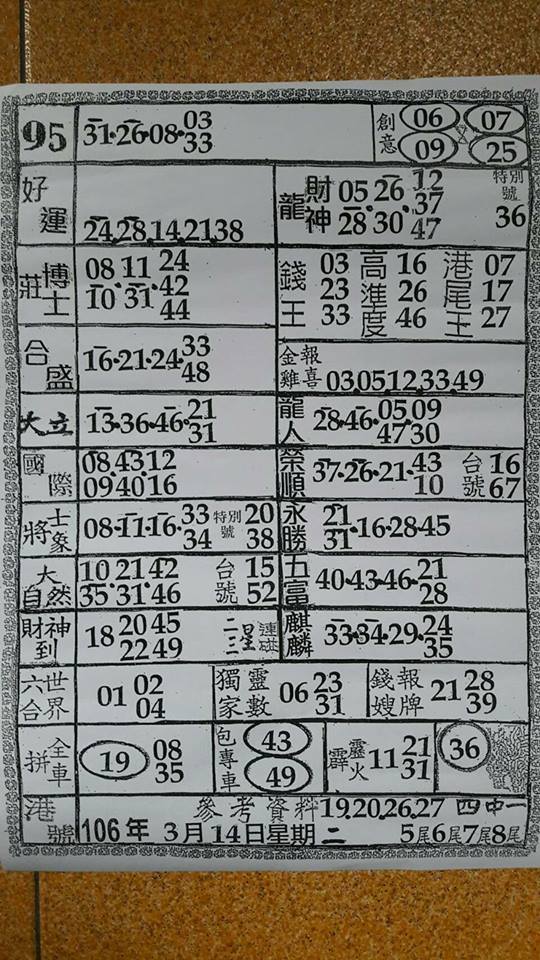 95 31·26·08·03 33 創意 06 07 09 25
好運 24.28.14.21.38
龍財神 05 26 12 28 30 37 47 特別號 36
莊博士 08 11 24 10 31 42 44
錢王 03 23 33 高準度 16 26 46 港尾王 07 17 27
合盛 16·21·24·33 48
金雞報喜 03.05.12.33.49
大立 13·36·46·21 31
龍人 28·46·05 09 47 30
國際 08.43.12 09 40 16
榮順 37·26·21·43 10 台號 16 67
將士象 08·11·16·33 34 特別號 20 38
永勝 21 31·16·28·45
大自然 10 21 42 35 31 46 台號 15 52
五富 40·43·46·21 28
財神到 18 20 45 22 49 二三星連碰
麒麟 33·34·29·24 35
六合世界 01 02 04
獨家靈數 06 23 31
錢嫂報牌 21 28 39
全車拼 19 08 35
包專車 43 49
霹靂火 11 21 31
36
港號 參考資料 19.20.26.27 四中一
106年 3月14日星期二 5尾6尾7尾8尾